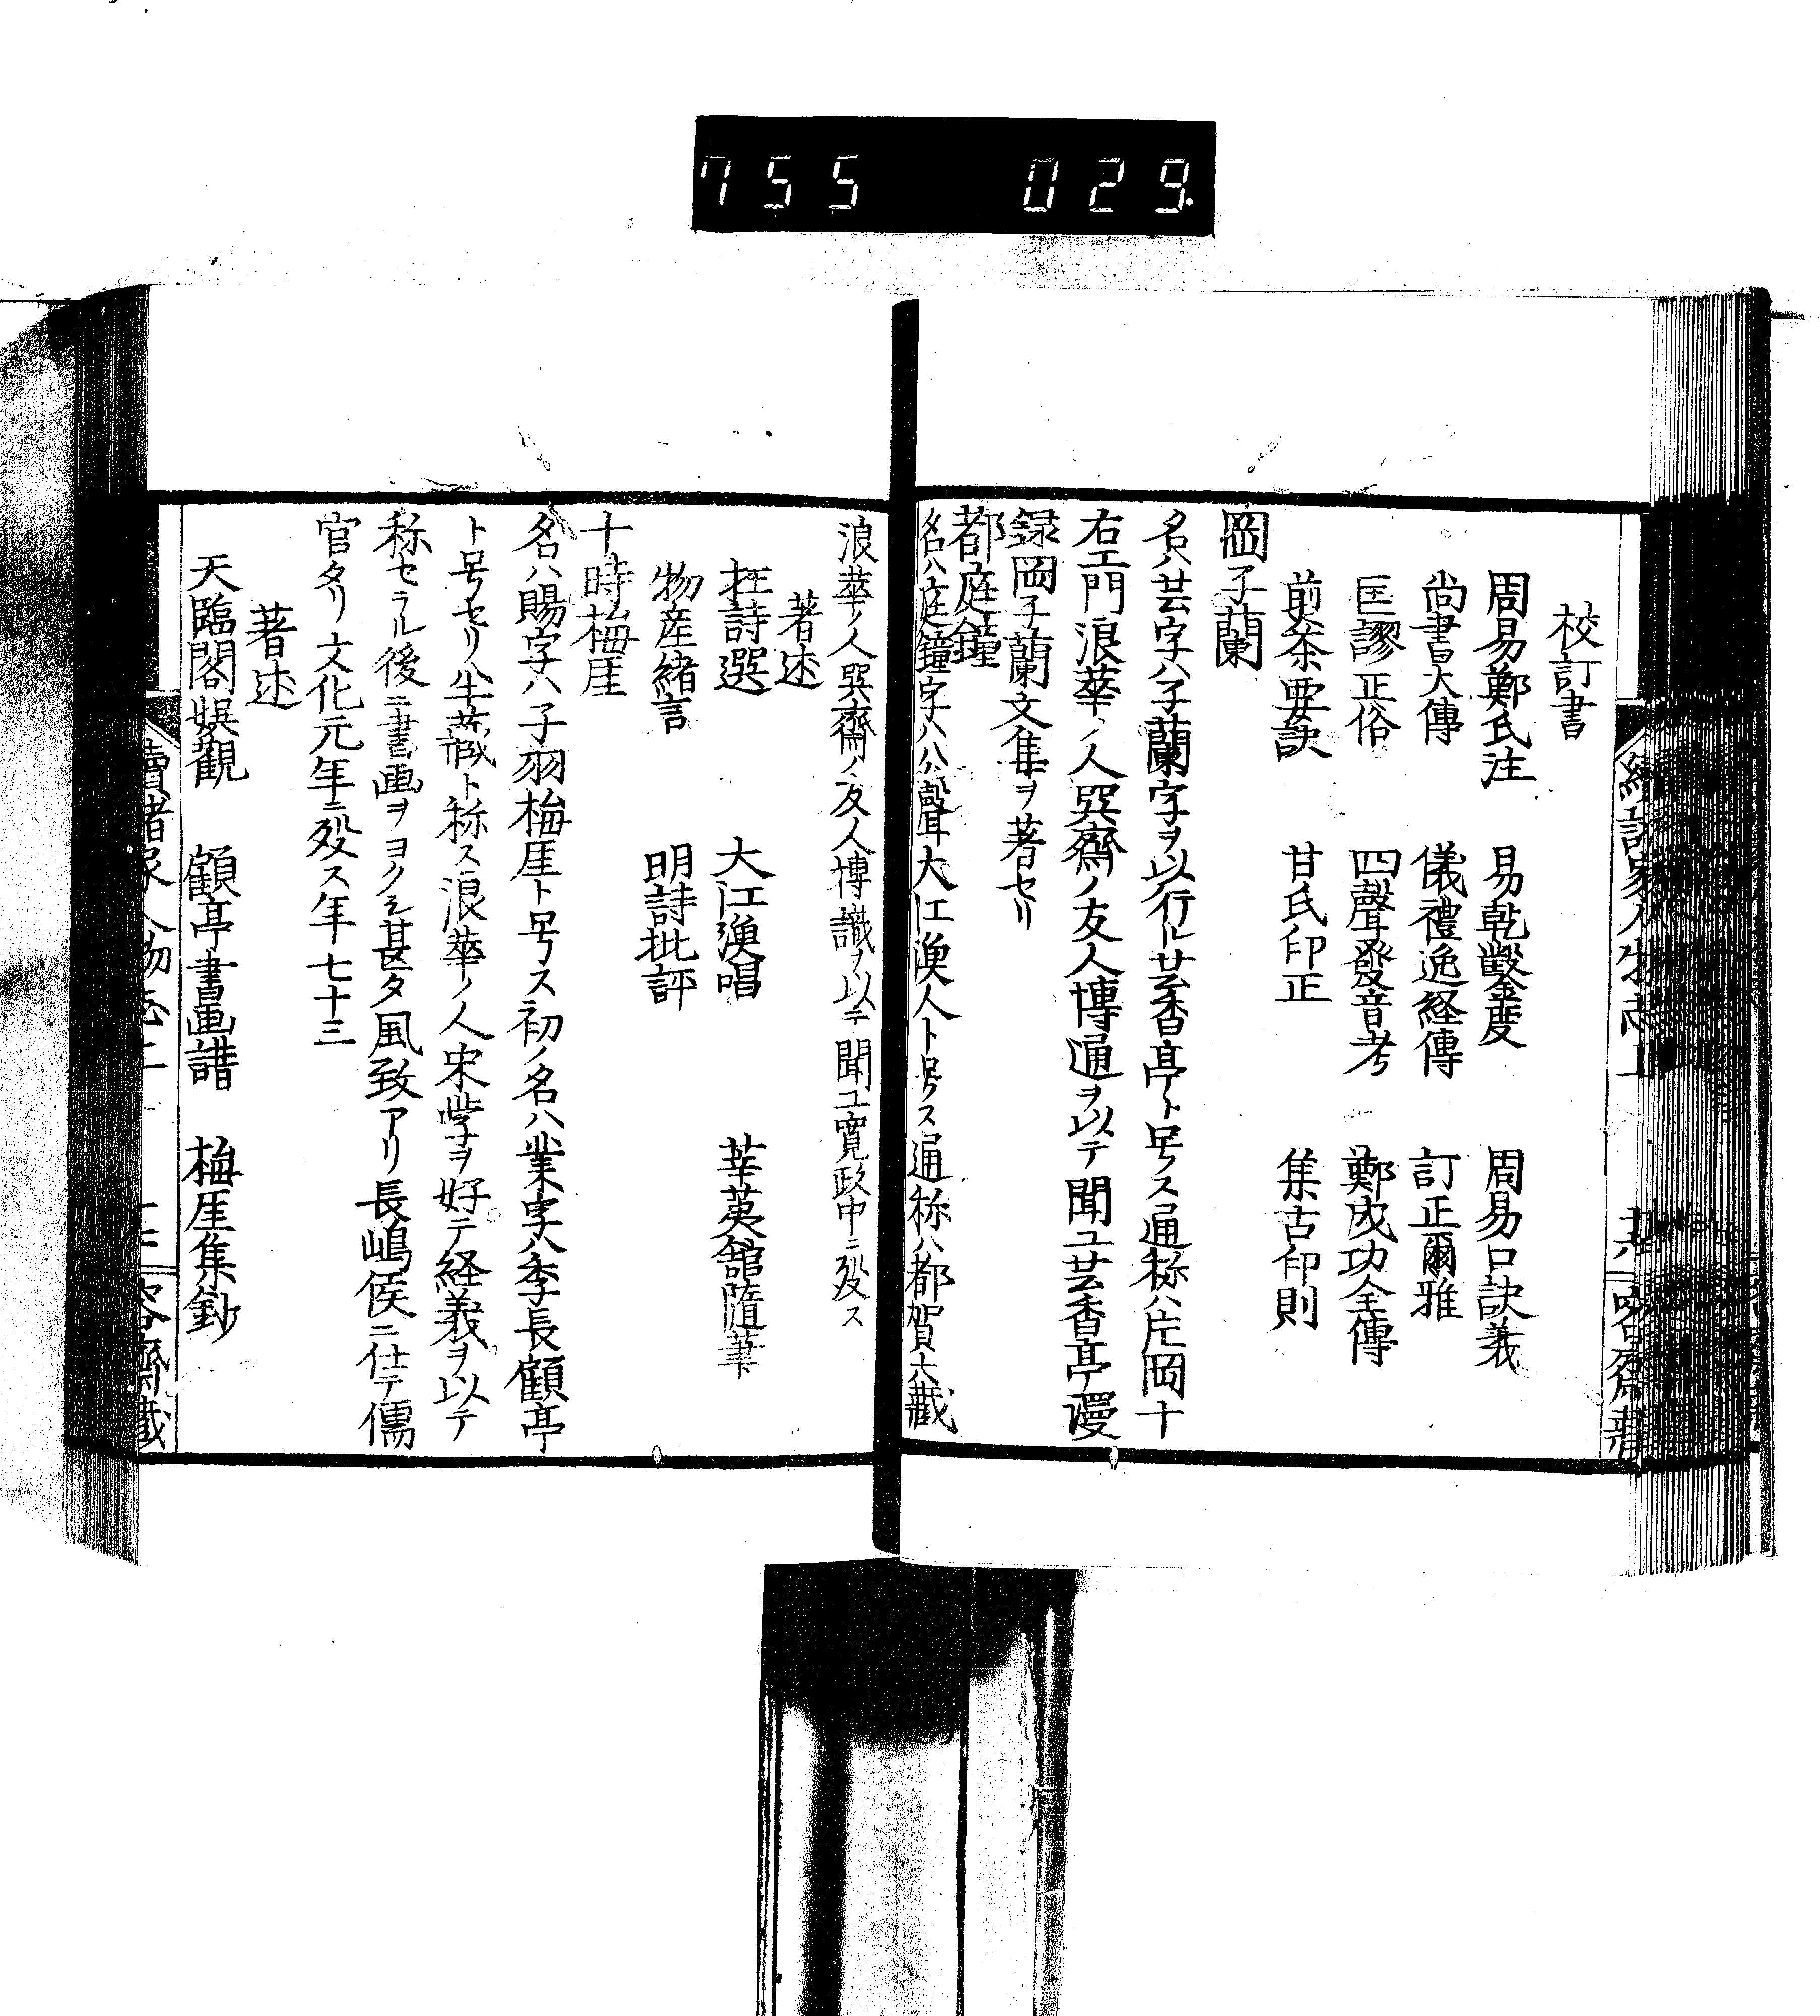 755 029
校訂書
周易鄭氏注 易乾鑿度 周易口訣義
尚書大傳 儀禮逸経傳 訂正爾雅
匡謬正俗 四聲發音考 鄭成功全傳
煎茶要訣 甘氏印正 集古印則
岡子蘭
名ハ芸字ハ子蘭字ヲ以行ル芸香亭ト号ス通称ハ片岡十
右エ門浪華ノ人巽齋ノ友人博通ヲ以テ聞ユ芸香亭謾
録岡子蘭文集ヲ著セリ
都庭鐘
名ハ庭鐘字ハ公聲大江漁人ト号ス通称ハ都賀六蔵
浪華ノ人巽齋ノ友人博識ヲ以テ聞ユ寛政中ニ歿ス
著述
狂詩選 大江漁唱 莘英舘隨筆
物産緒言 明詩批評
十時梅厓
名ハ賜字ハ子羽梅厓ト号ス初ノ名ハ業字ハ季長顧亭
ト号セリ半蔵ト称ス浪華ノ人宋学ヲ好テ経義ヲ以テ
称セラル後ニ書画ヲヨクシ甚タ風致アリ長嶋侯ニ仕テ儒
官タリ文化元年ニ歿ス年七十三
著述
天臨閣娯觀 顧亭書画譜 梅厓集鈔